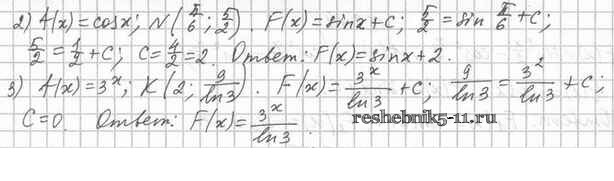 2) f(x)=cosx; N(π/6; 5/2). F(x)=sinx+C; 5/2=sin π/6+C;
5/2=1/2+C; C=4/2=2. Ответ: F(x)=sinx+2.
3) f(x)=3^x; K(2; 9/ln3). F(x)=3^x/ln3+C; 9/ln3=3^2/ln3+C;
C=0. Ответ: F(x)=3^x/ln3.
www.reshebnik5-11.ru